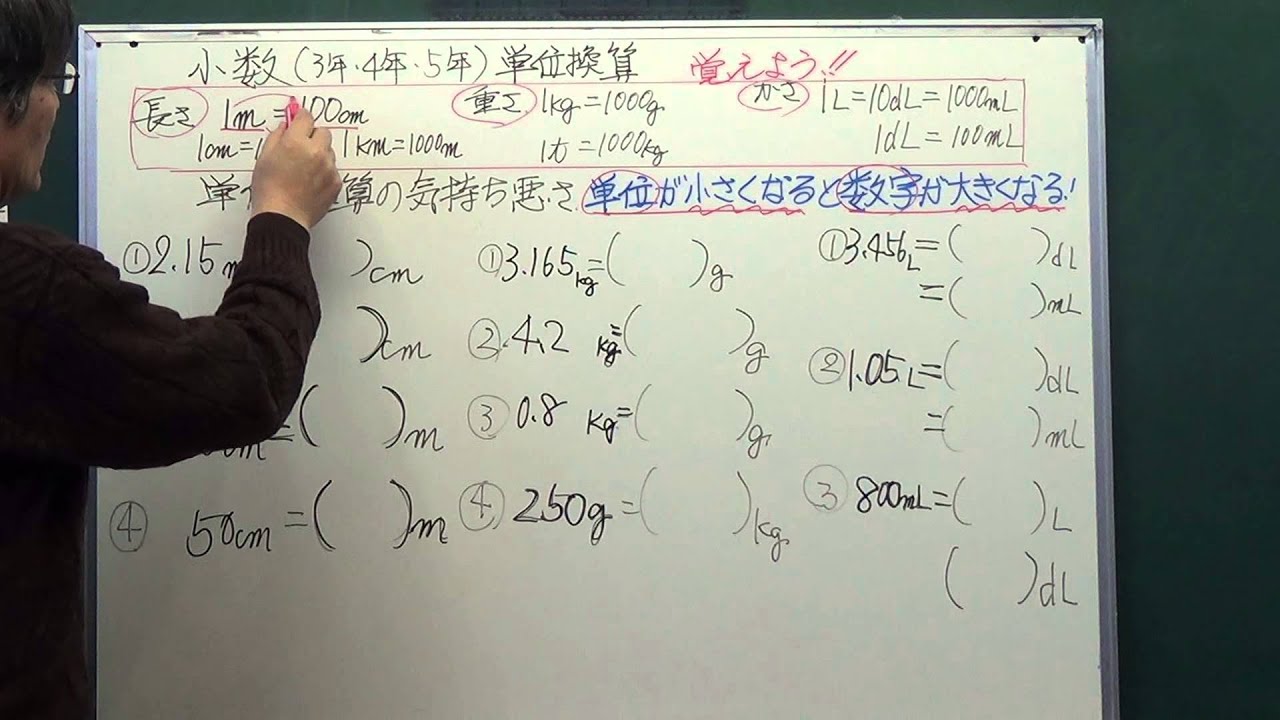 小数(3年・4年・5年)単位換算 覚えよう!!
長さ 1m=100cm
1cm=1
1km=1000m
重さ 1kg=1000g
1t=1000kg
かさ 1L=10dL=1000mL
1dL=100mL
単位 算の気持ち悪さ 単位が小さくなると数字が大きくなる!
①2.15m )cm
)cm
cm=( )m
④ 50cm=( )m
①3.165kg=( )g
②4.2kg=( )g
③0.8kg=( )g
④250g=( )kg
①3.456L=( )dL
=( )mL
②1.05L=( )dL
=( )mL
③800mL=( )L
( )dL